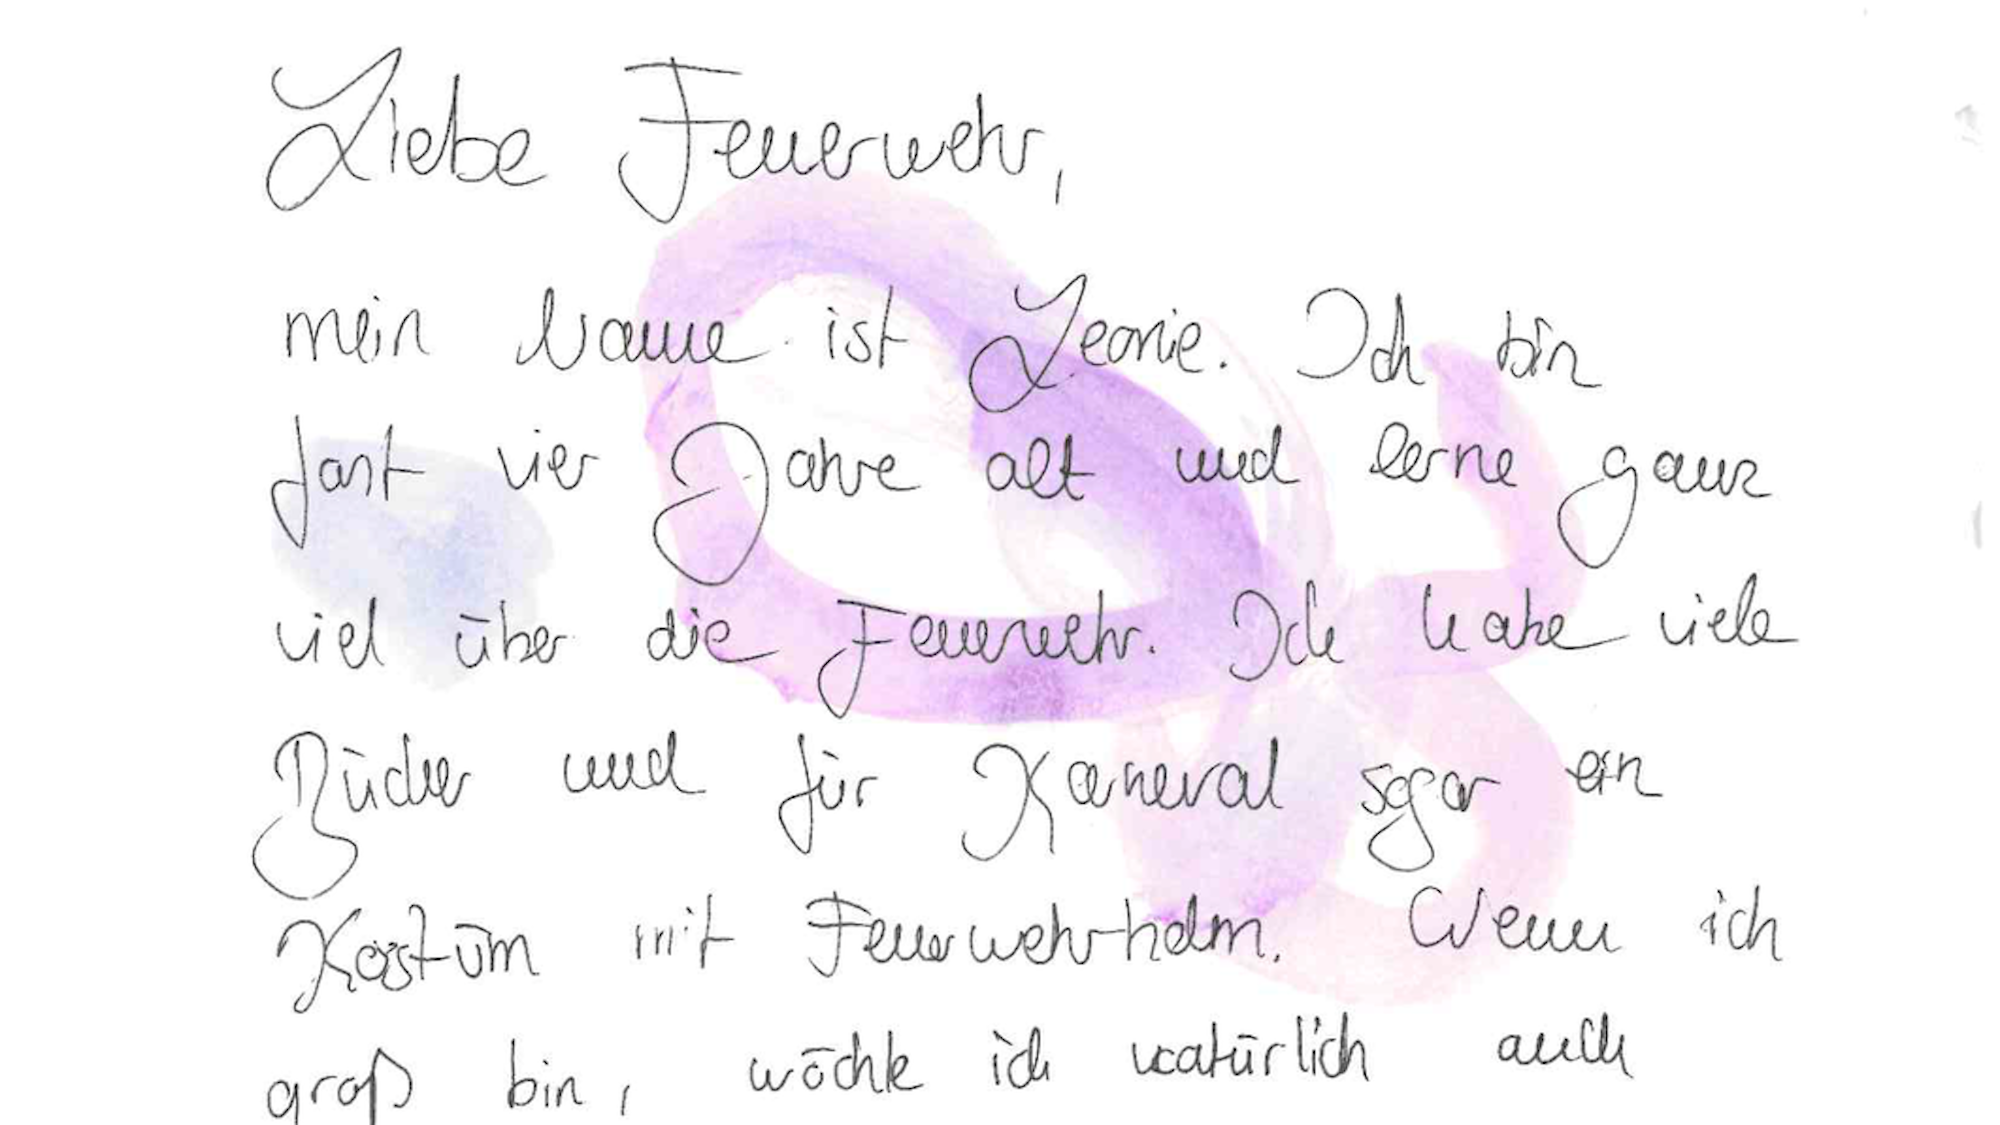 Liebe Feuerwehr,
mein Name ist Leonie. Ich bin
fast vier Jahre alt und lerne ganz
viel über die Feuerwehr. Ich habe viele
Bücher und für Karneval sogar ein
Kostüm mit Feuerwehrhelm. Wenn ich
groß bin, möchte ich natürlich auch